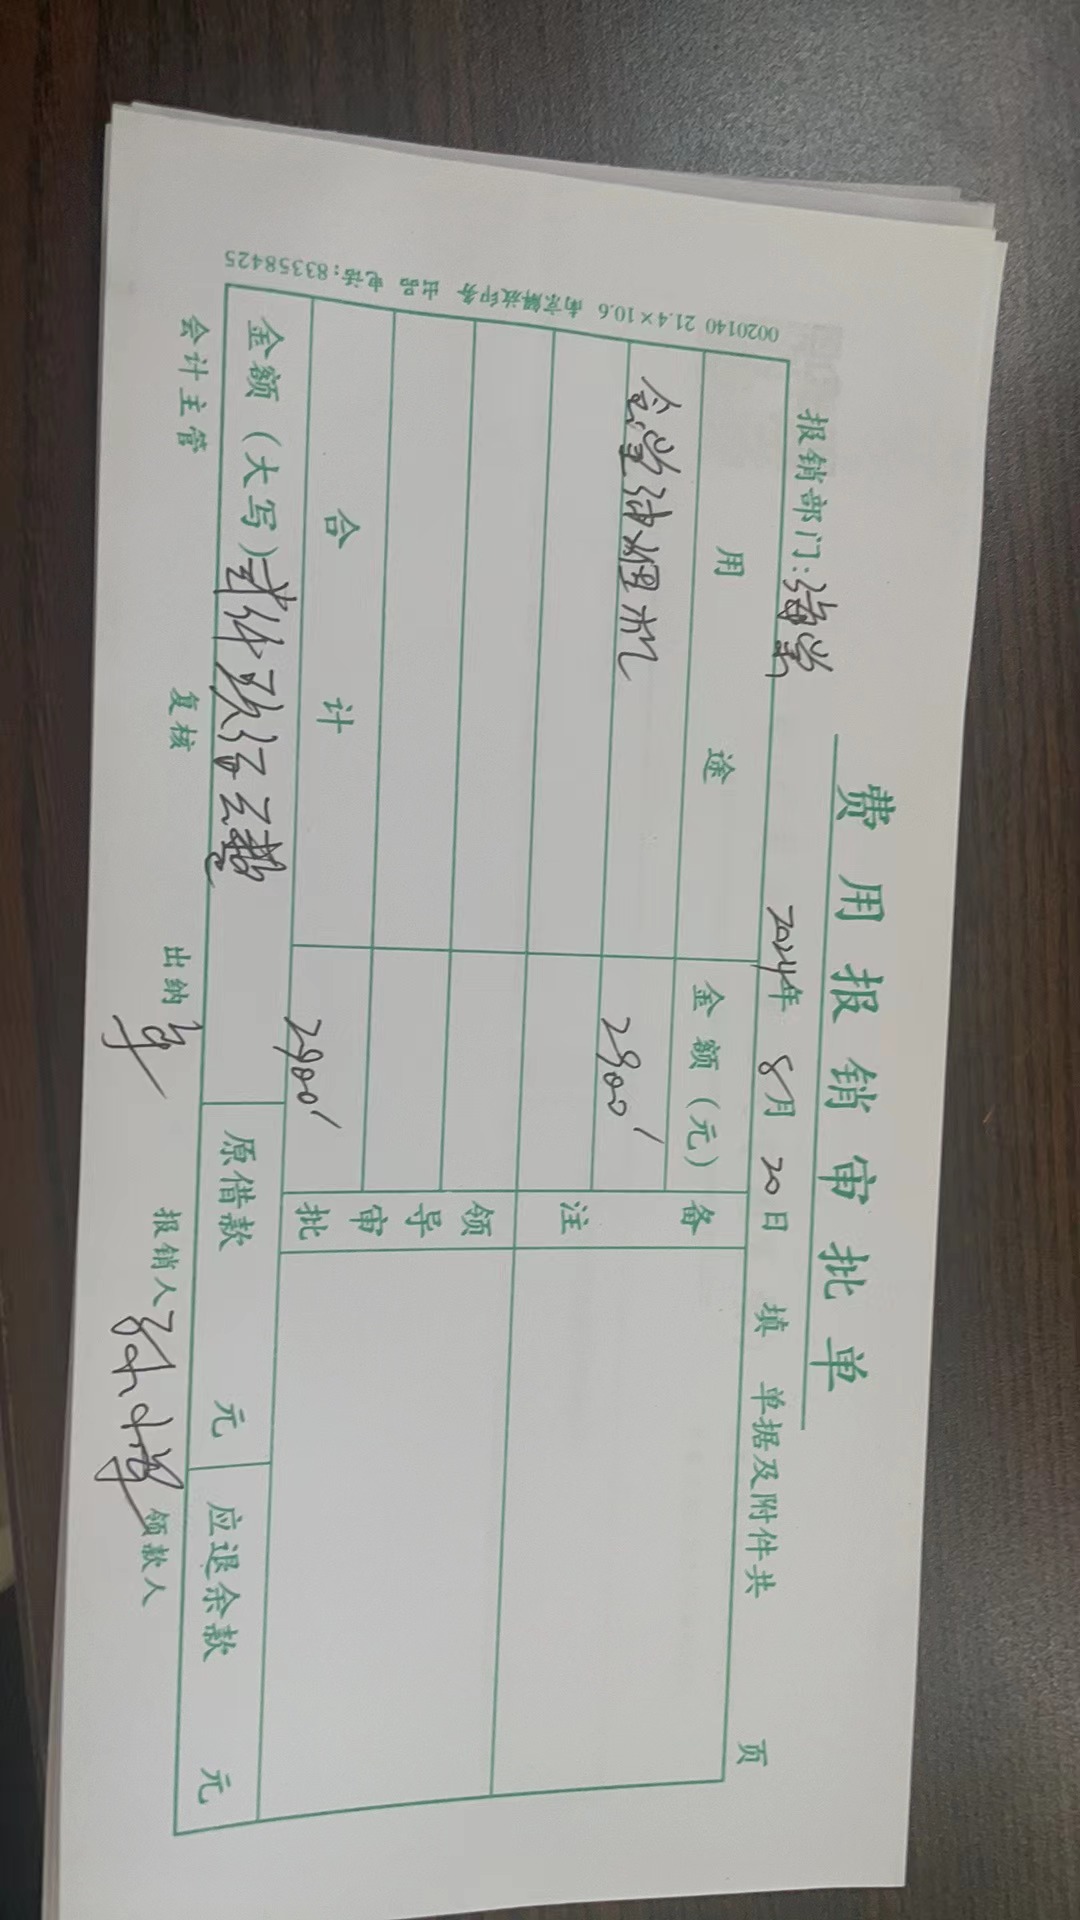 费用报销审批单
报销部门:海棠 2024年 8月 20日 填 单据及附件共 页
用途 金额(元) 备注
食堂油烟机 2900
领导审批
合计 2900
金额(大写)贰仟玖佰元整 原借款 元 应退余款 元
会计主管 复核 出纳 报销人 领款人
0020140 21.4×10.6 南京解放印务 出品 电话:83358425